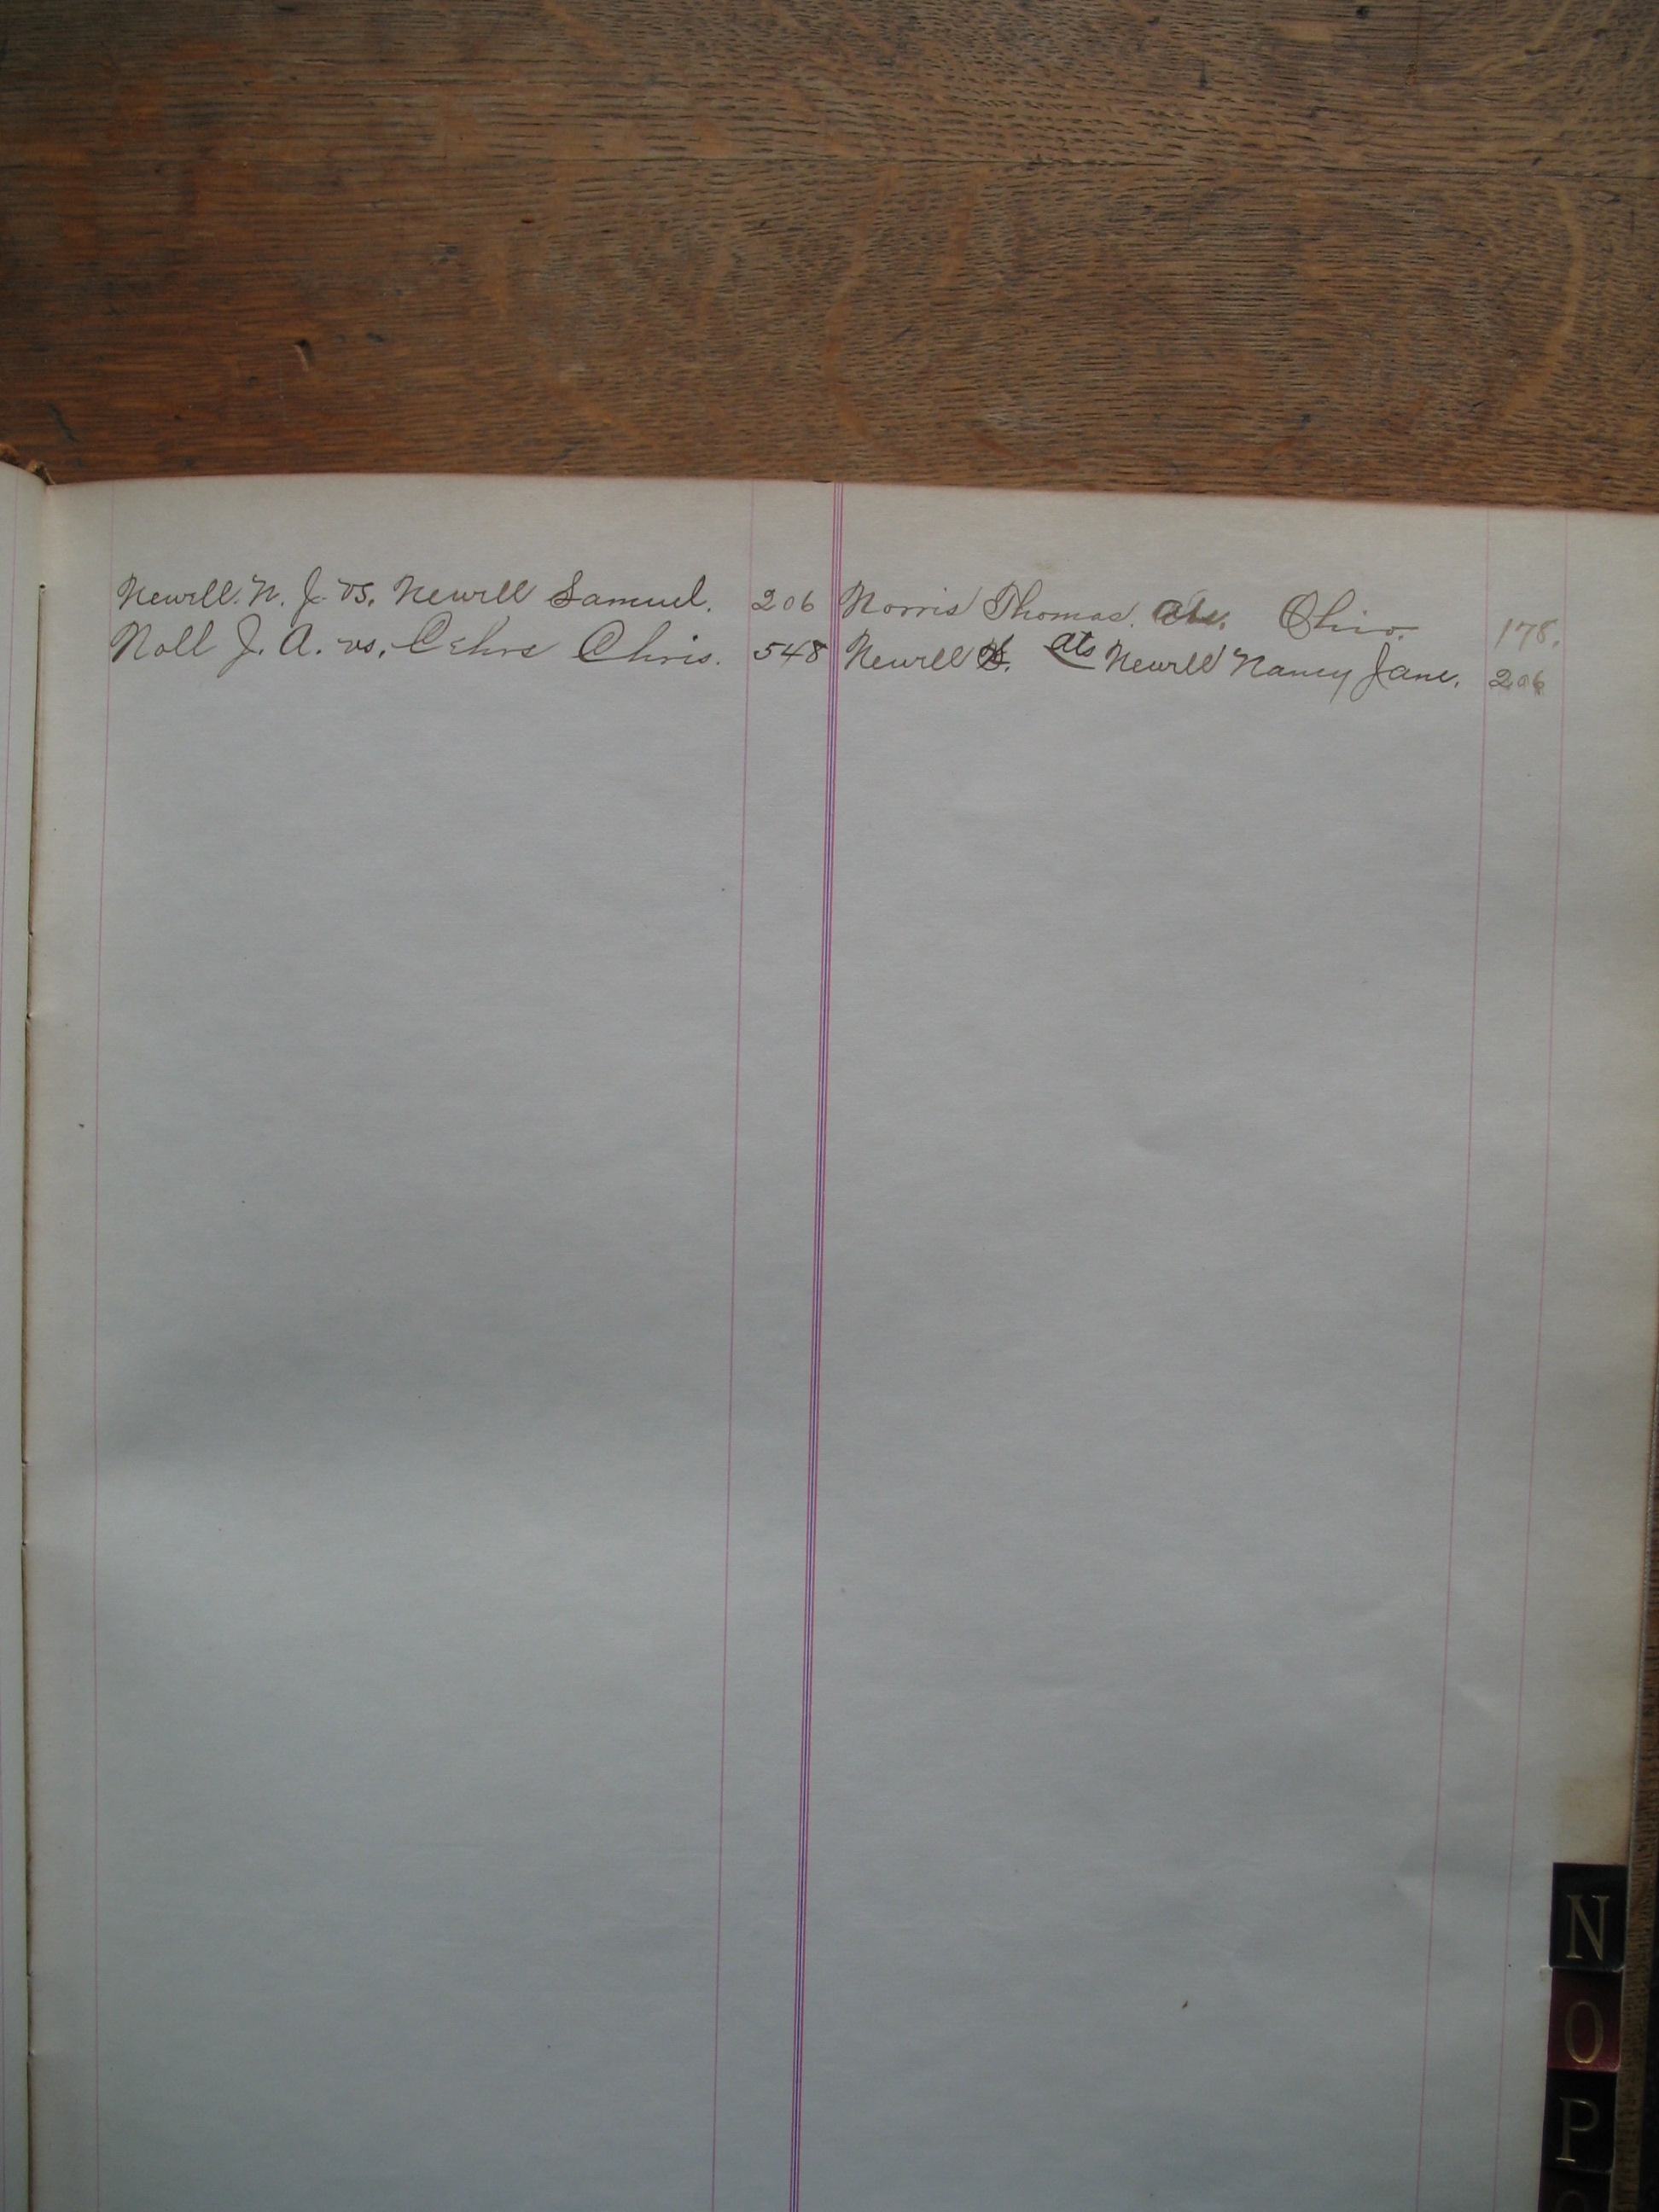 Newell. N. J. vs. Newell Samuel. 206
Noll J. A. vs. Chris. 548
Norris Thomas. ats. Ohio. 178.
Newell S. ats Newell Nancy Jane. 206
N
O
P